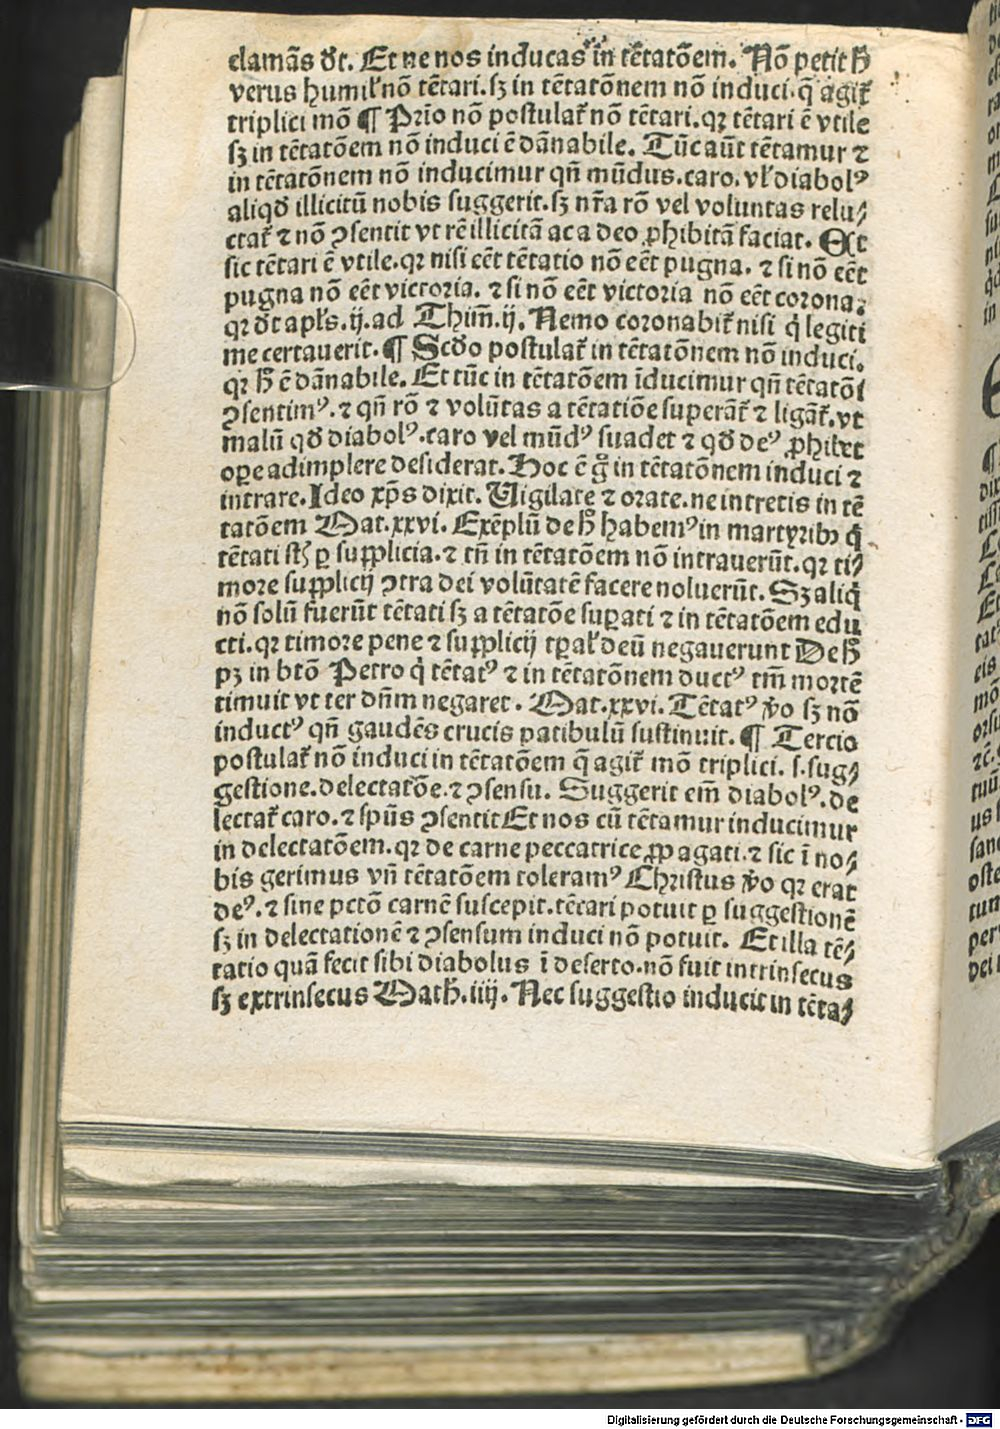 clamãs ꝺt. Et ne nos inducas in tẽtatõem. Nõ petit h̄
verus humil̕ nõ tẽtari. sꝫ in tẽtatõnem nõ induci. q̄ agit̕
triplici mõ ¶ Prĩo nõ postulat̕ nõ tẽtari. qꝛ tẽtari ẽ vtile
sꝫ in tẽtatõem nõ induci ẽ dãnabile. Tũc aũt tẽtamur ⁊
in tẽtatõnem nõ inducimur qñ mũdus. caro. vl̕ diabolꝰ
aliqꝺ illicitũ nobis suggerit. sꝫ nr̃a rõ vel voluntas relu⸗
ctat̕ ⁊ nõ ꝯsentit vt rẽ illicitã ac a deo ꝓhibitã faciat. Et
sic tẽtari ẽ vtile. qꝛ nisi eẽt tẽtatio nõ eẽt pugna. ⁊ si nõ eẽt
pugna nõ eẽt victoria. ⁊ si nõ eẽt victoria nõ eẽt corona.
qꝛ ꝺt apl̕s. ij. ad Thim̃. ij. Nemo coronabit̕ nisi q̇ legiti
me certauerit. ¶ Scꝺo postulat̕ in tẽtatõnem nõ induci.
qꝛ h̄ ẽ dãnabile. Et tũc in tẽtatõem ĩducimur qñ tẽtatõi
ꝯsentimꝰ. ⁊ qñ rõ ⁊ volũtas a tẽtatiõe superãt̕ ⁊ ligãt̕. vt
malũ qꝺ diabolꝰ. caro vel mũdꝰ suadet ⁊ qꝺ deꝰ ꝓhibet
oꝑe adimplere desiderat. Hoc ẽ g̊ in tẽtatõnem induci ⁊
intrare. Ideo xp̃s dixit. Uigilate ⁊ orate. ne intretis in tẽ
tatõem Mat. xxvi. Exẽplũ de h̊ habemꝰ in martyribꝫ q̇
tẽtati st̃ ꝑ supplicia. ⁊ tñ in tẽtatõem nõ intrauerũt. qꝛ ti⸗
more supplicij ꝯtra dei volũtatẽ facere noluerũt. Sꝫ aliq̇
nõ solũ fuerũt tẽtati sꝫ a tẽtatõe suꝑati ⁊ in tẽtatõem edu
cti. qꝛ timore pene ⁊ supplicij tꝑal̕ deũ negauerunt De h̊
pꝫ in btõ Petro q̇ tẽtatꝰ ⁊ in tẽtatõnem ductꝰ tm̃ mortẽ
timuit vt ter dñm negaret. Mat. xxvi. Tẽtatꝰ v̊o sꝫ nõ
inductꝰ qñ gaudẽs crucis patibulũ sustinuit. ¶ Tercio
postulat̕ nõ induci in tẽtatõem q̄ agit̕ mõ triplici. s. sug⸗
gestione. delectatõe. ⁊ ꝯsensu. Suggerit em̃ diabolꝰ. de
lectat̕ caro. ⁊ spũs ꝯsentit Et nos cũ tẽtamur inducimur
in delectatõem. qꝛ de carne peccatrice ꝓpagati. ⁊ sic ĩ no⸗
bis gerimus vñ tẽtatõem toleramꝰ Christus v̊o qꝛ erat
deꝰ. ⁊ sine pctõ carnẽ suscepit. tẽtari potuit ꝑ suggestionẽ
sꝫ in delectationẽ ⁊ ꝯsensum induci nõ potuit. Et illa tẽ⸗
tatio quã fecit sibi diabolus ĩ deserto. nõ fuit intrinsecus
sꝫ extrinsecus Math̃. iiij. Nec suggestio inducit in tẽta⸗
Digitalisierung gefördert durch die Deutsche Forschungsgemeinschaft - DFG